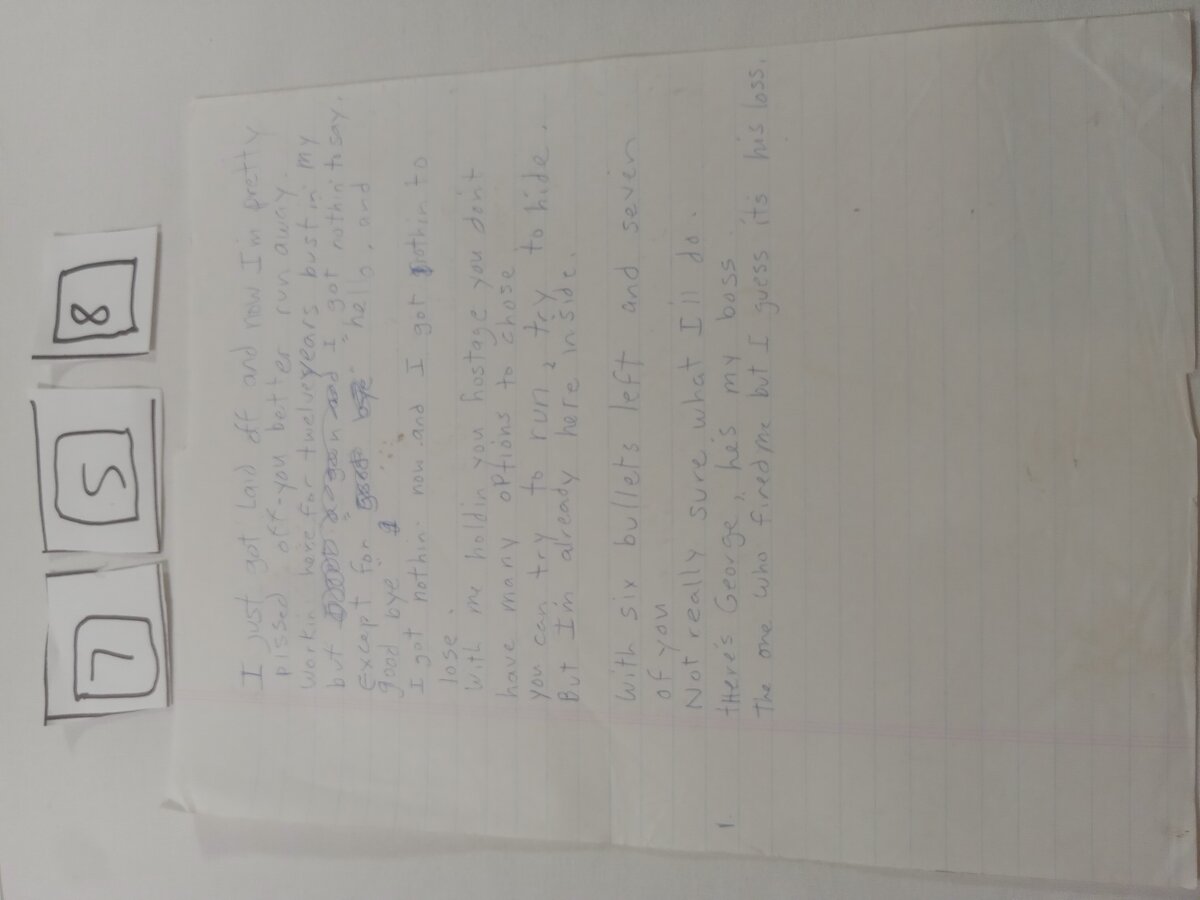 7 5 8
I just got laid off and now I'm pretty
pissed off-you better run away.
Workin here for twelve years bustin' my
but I got nothin' to say.
Excapt for "hello, and
good bye
I got nothin now and I got nothin to
lose.
With me holdin you hostage you don't
have many options to chose
you can try to run, try to hide.
But I'm already here inside.
With six bullets left and seven
of you
Not really sure what I'll do.
1. tHere's George, hes my boss.
The one who fired me but I guess its his loss.